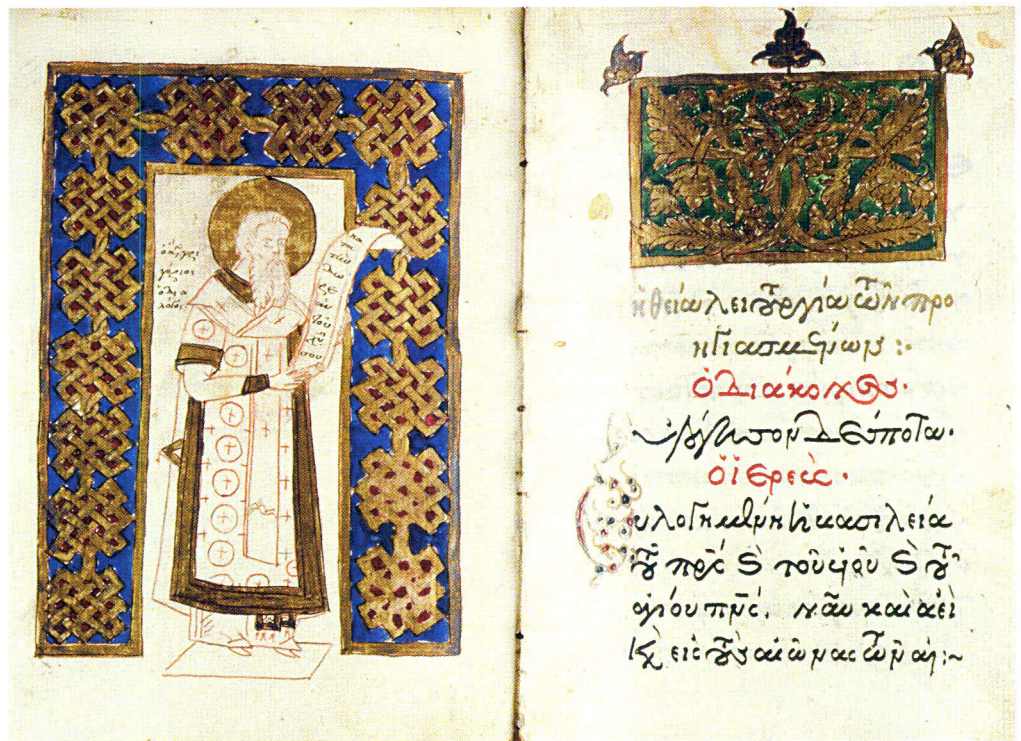 γόριος
λόγος
ἡ θεία λειτουργία τῶν προ
ηγιασμένων :·
Ὁ Διάκονος·
Εὐλόγησον Δέσποτα·
Ὁ ἱερεύς·
Εὐλογημένη ἡ βασιλεία
τοῦ πρς ϗ τοῦ υἱοῦ ϗ τοῦ
ἁγίου πνς. νῦν καὶ ἀεὶ
ϗ εἰς τοὺς αἰῶνας τῶν αἰ:~